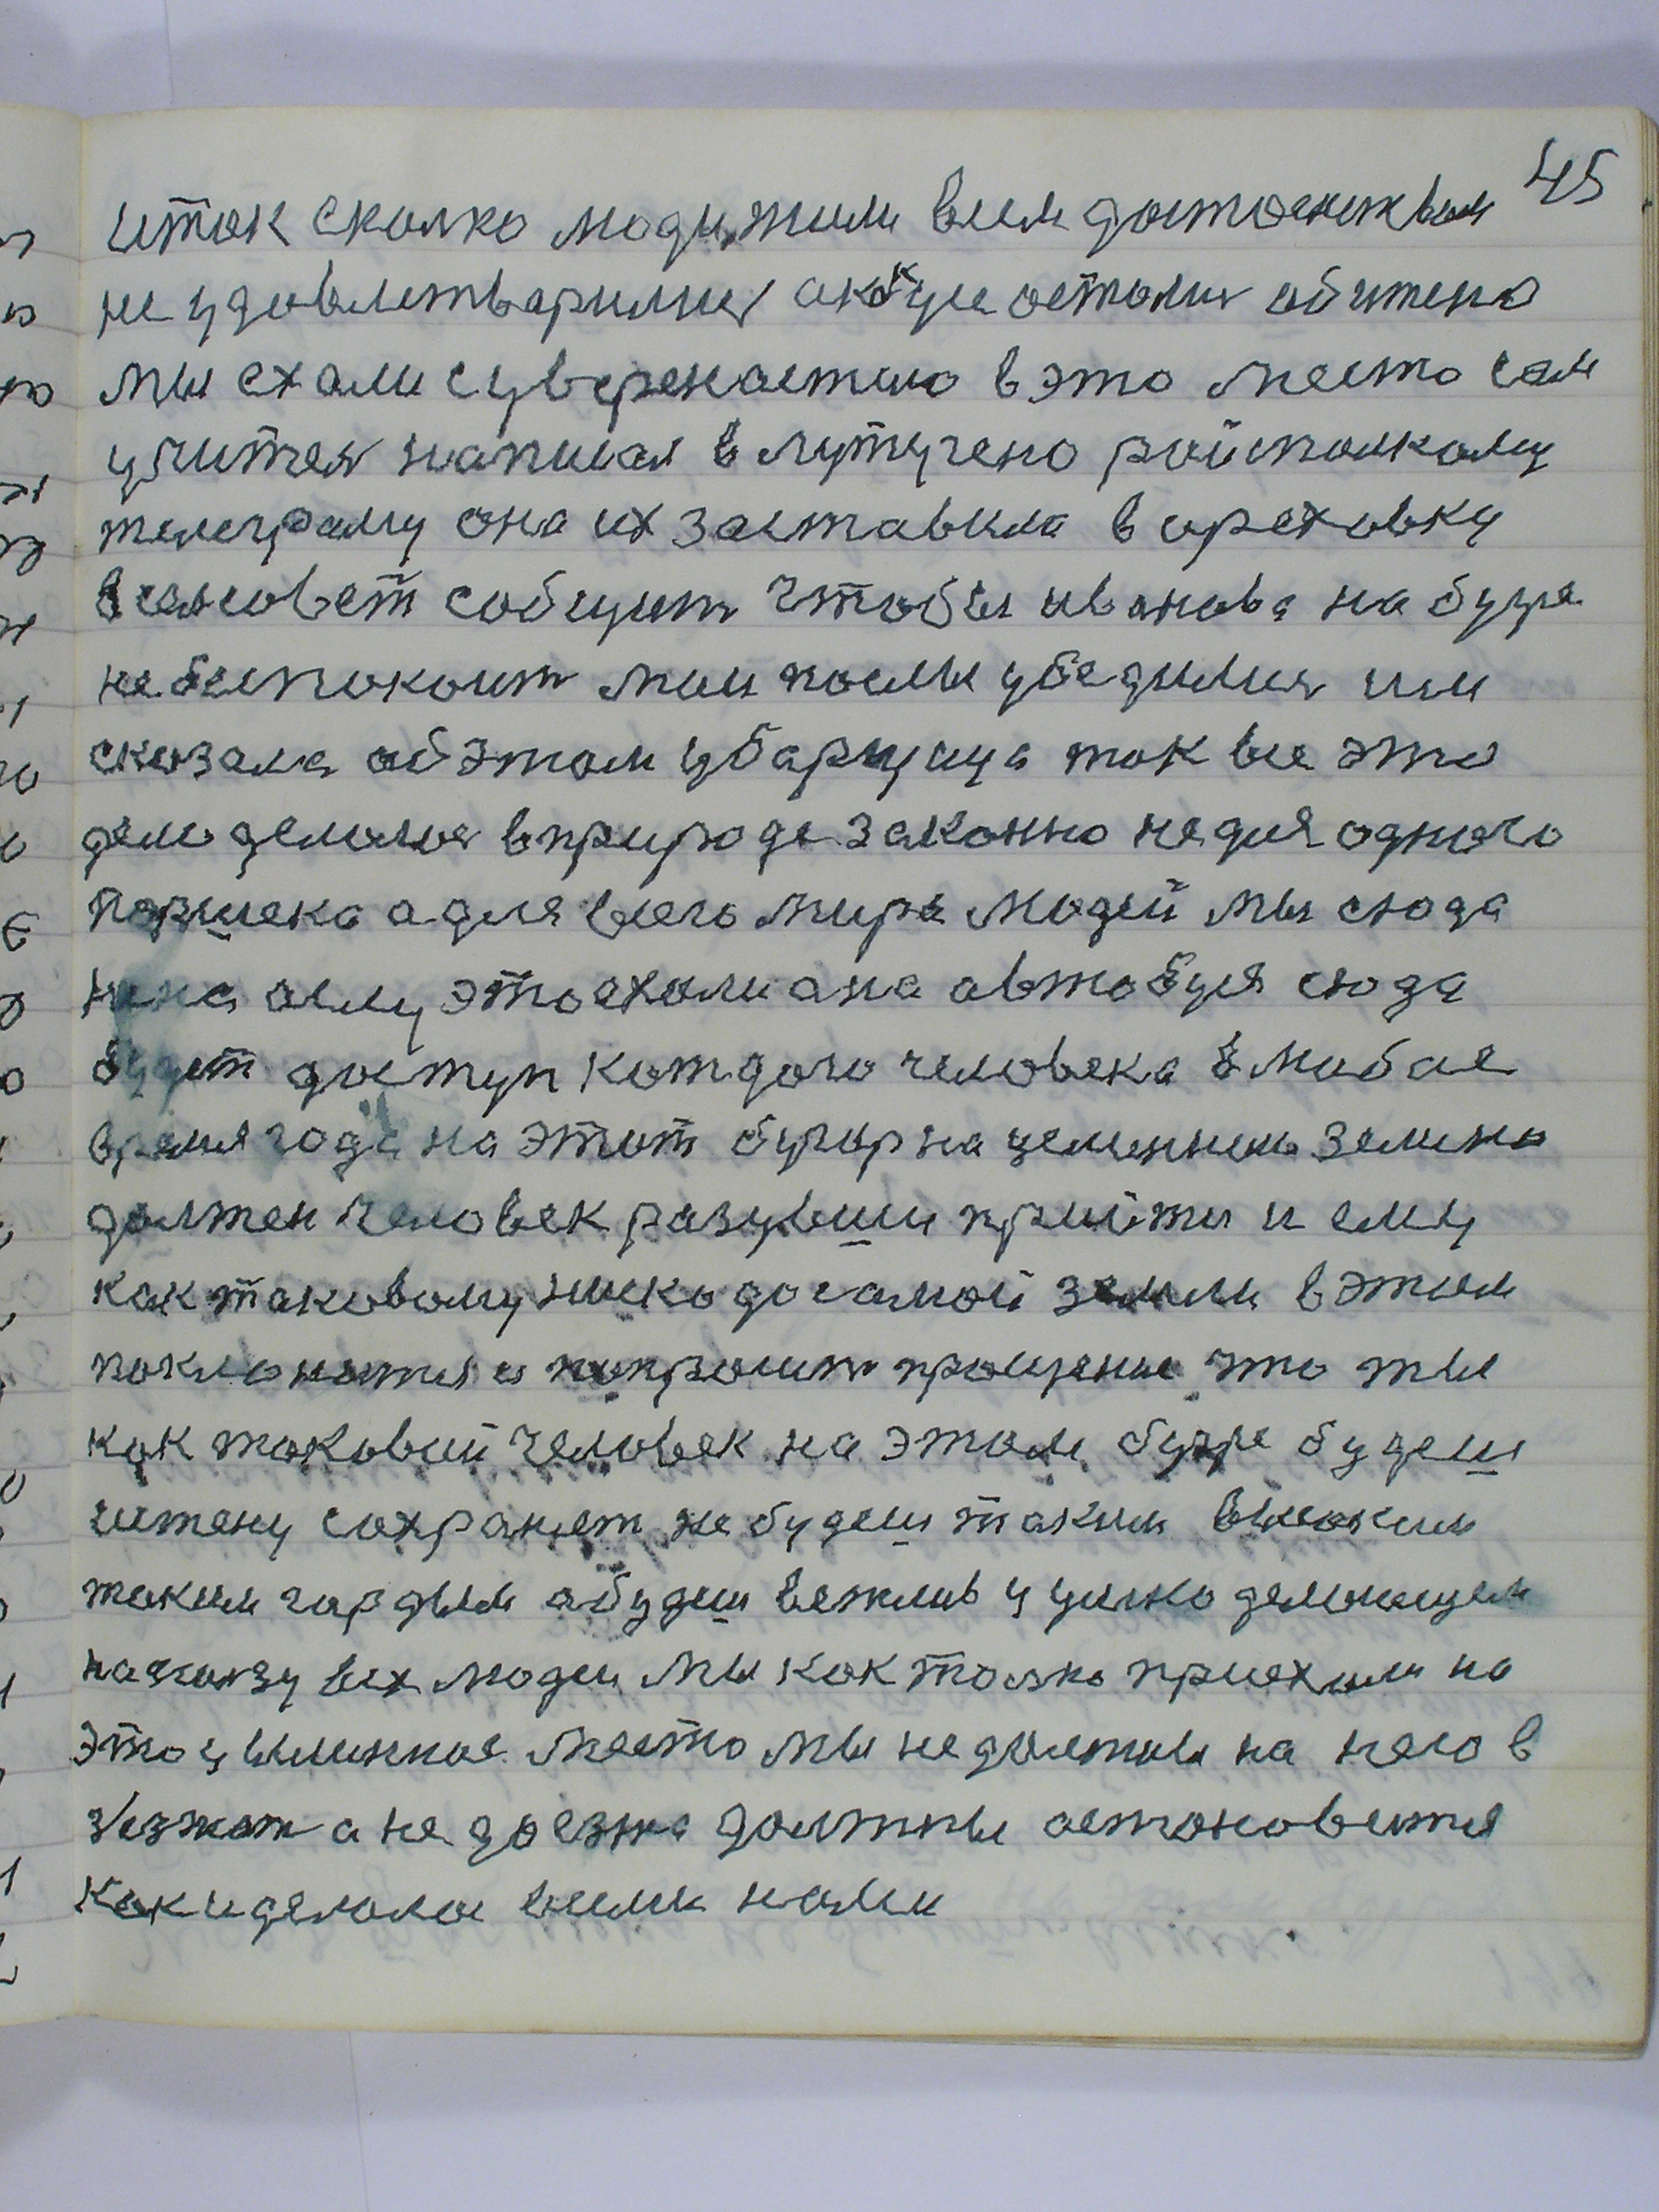 45
иток сколко люди жили всем достоенством
не удовлетварилис а к куче остолис обижено
мы ехали суверенастию в это место сам
учител написал в лутугено райисполкому
телеграму она их заставила в ореховку
в селсовет собщит чтобы иванова на бугре
не беспокоит мы после убедилис или
сказала об этом убарщица ток все это
дело делалос в природе законно не для одного
паршека а для всего мира людей мы сюда
ни на селу это ехоли а на автобуся сюда
будет доступ котдого человека в любое
время года на этот бугор на целенною землю
должен человек разувши прийти и ему
как таковому ниско до самой земли в этим
поклонится и попросит прощение что ты
как таковый человек на этом бугре будеш
истену сохранят не будеш таким высоким
таким гордым а будеш вежлив у училко делающем
на ползу всех людей мы как толко приехали на
это у ылинное место мы не должны на него в
зезжат а не доезжа должны остоновится
как и делалос всими нами